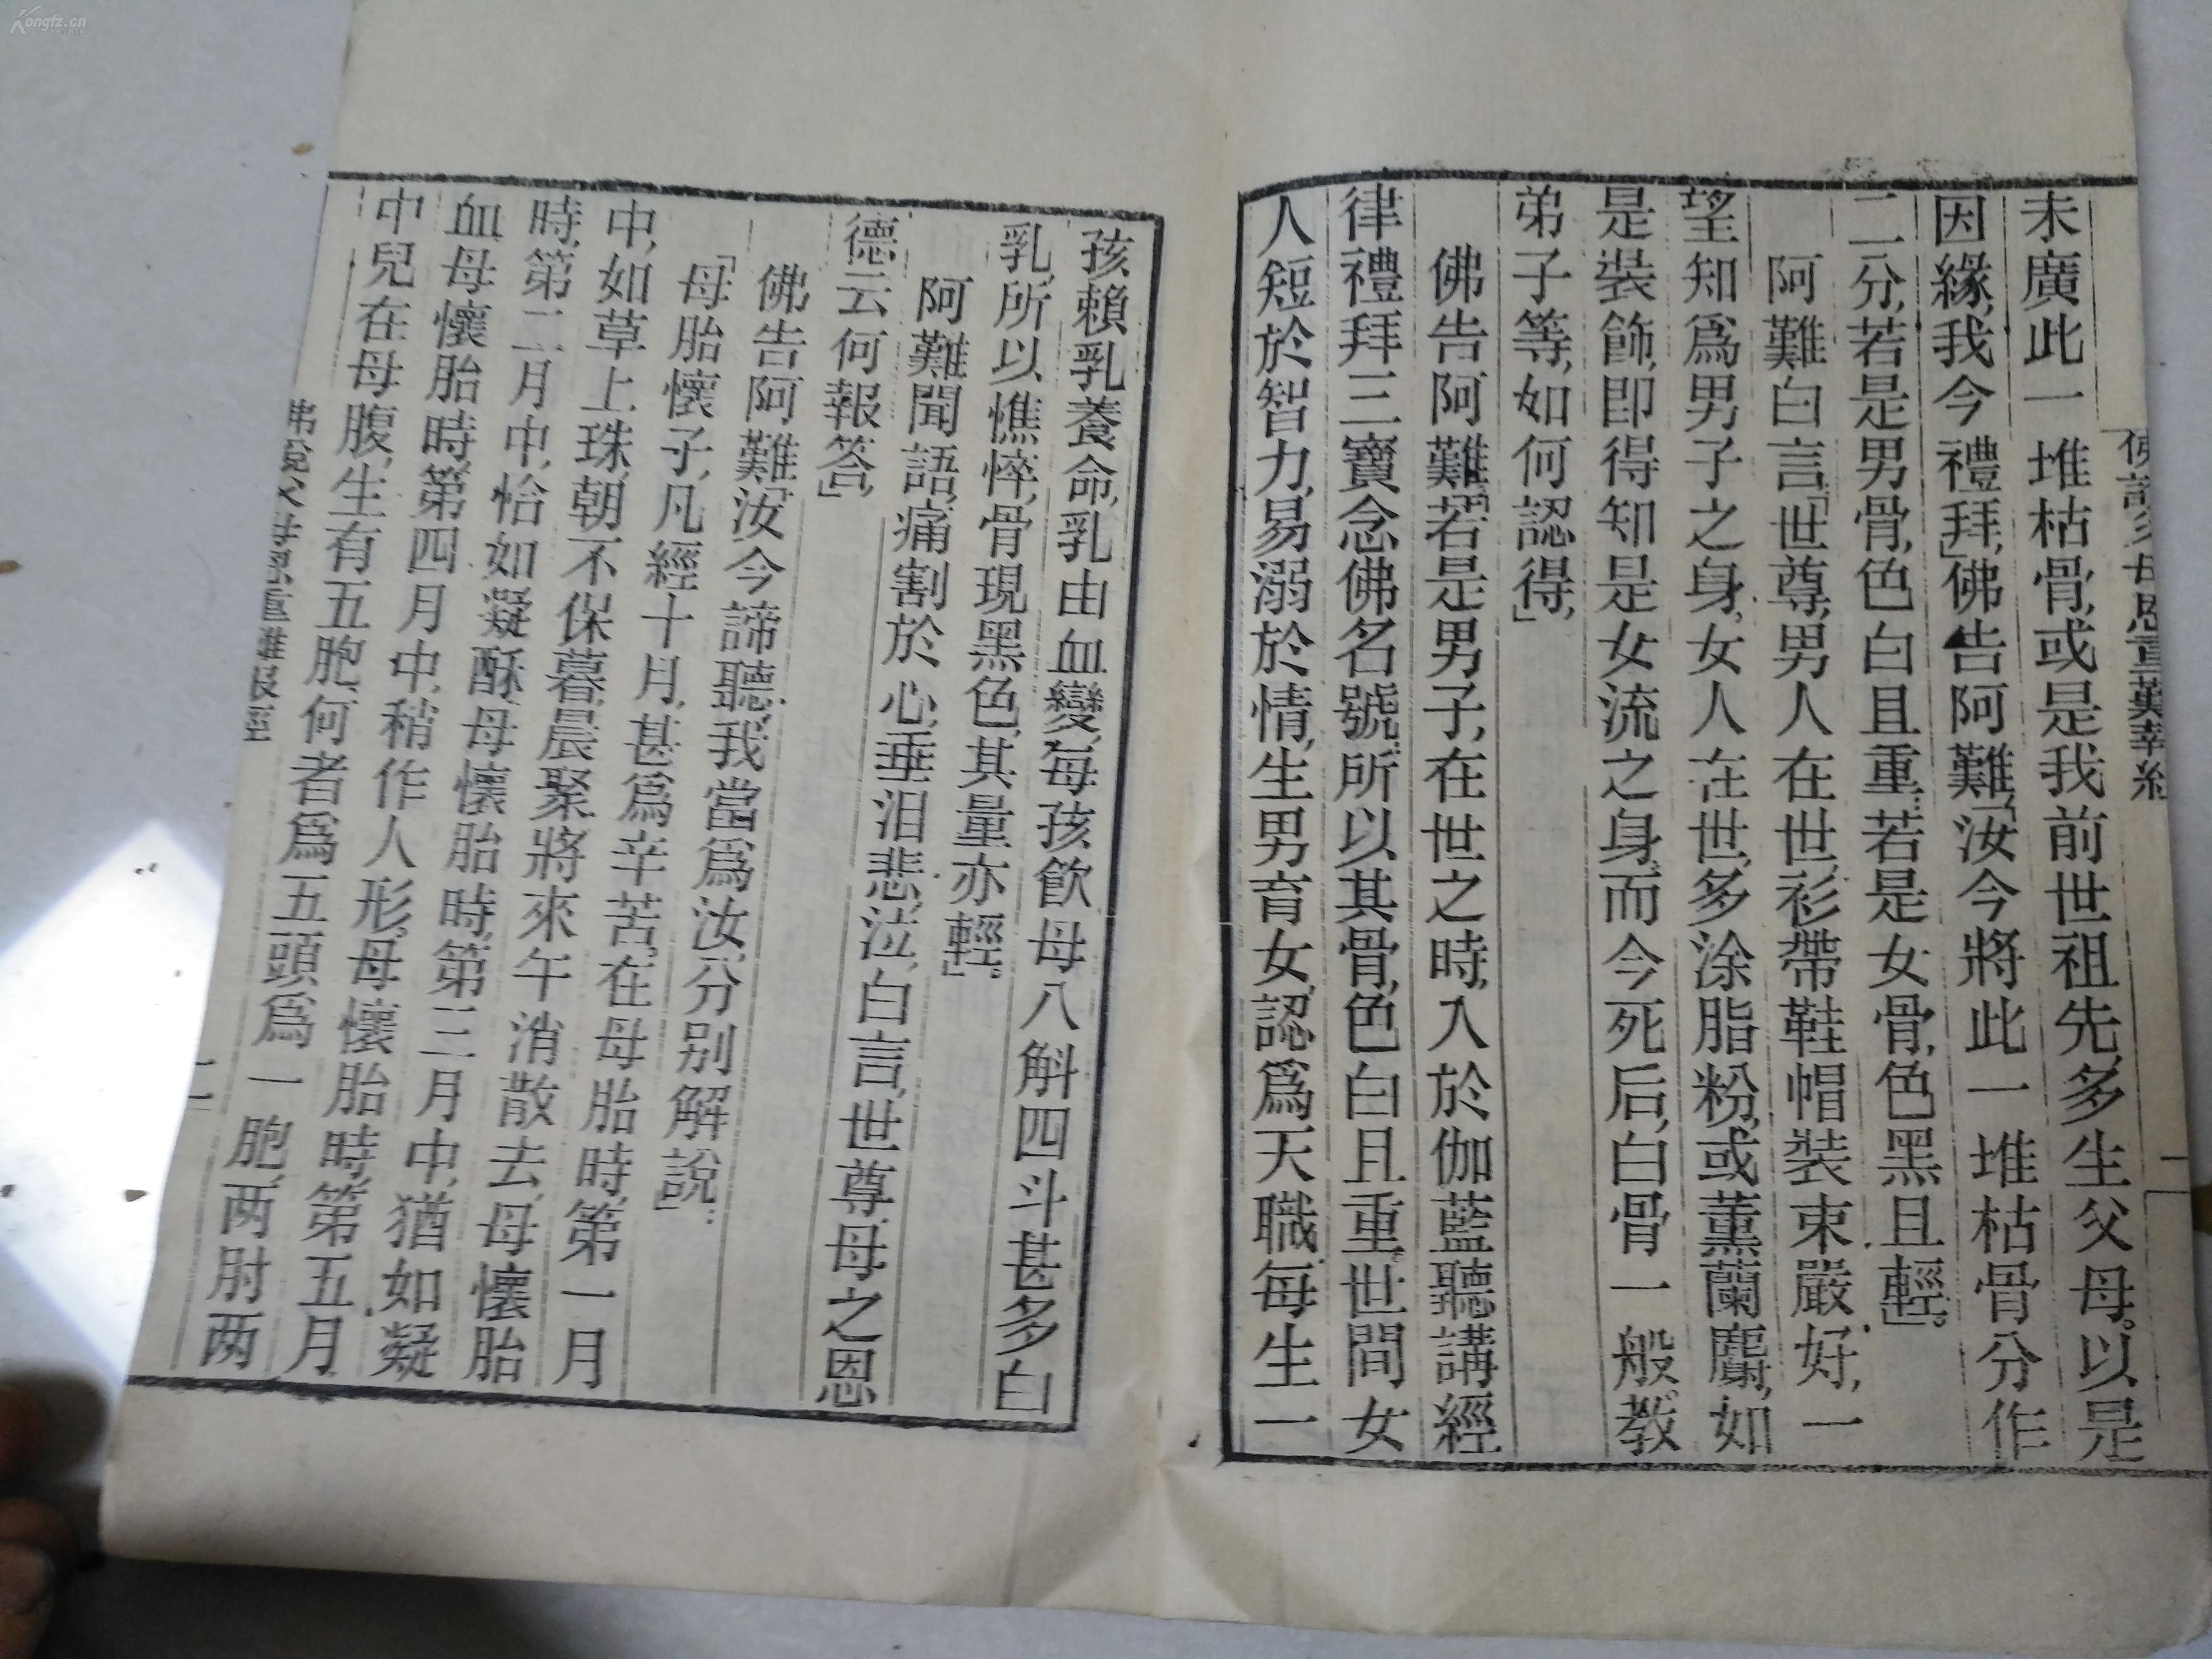 Kongfz.cn
未廣此一堆枯骨,或是我前世祖先,多生父母。以是
因緣,我今禮拜,」佛告阿難「汝今將此一堆枯骨分作
二分,若是男骨,色白且重;若是女骨,色黑且輕。」
阿難白言,「世尊,男人在世,衫帶鞋帽裝束嚴好,一
望知爲男子之身,女人在世,多涂脂粉,或薰蘭麝,如
是裝飾,即得知是女流之身,而今死后,白骨一般,教
弟子等,如何認得,」
佛告阿難,「若是男子,在世之時,入於伽藍聽講經
律禮拜三寶念佛名號,所以其骨,色白且重,世間女
人短於智力,易溺於情,生男育女,認爲天職每生一
孩賴乳養命,乳由血變,每孩飲母八斛四斗甚多白
乳,所以憔悴,骨現黑色,其量亦輕。」
阿難聞語,痛割於心,垂泪悲泣,白言,世尊,母之恩
德云何報答,」
佛告阿難,「汝今諦聽,我當爲汝,分别解說」:
「母胎懷子,凡經十月,甚爲辛苦,在母胎時,第一月
中,如草上珠,朝不保暮,晨聚將來午消散去,母懷胎
時,第二月中,恰如凝酥,母懷胎時,第三月中,猶如凝
血,母懷胎時,第四月中,稍作人形,母懷胎時,第五月
中兒在母腹,生有五胞,何者爲五頭爲一胞,两肘两
佛說父母恩重難報經
二